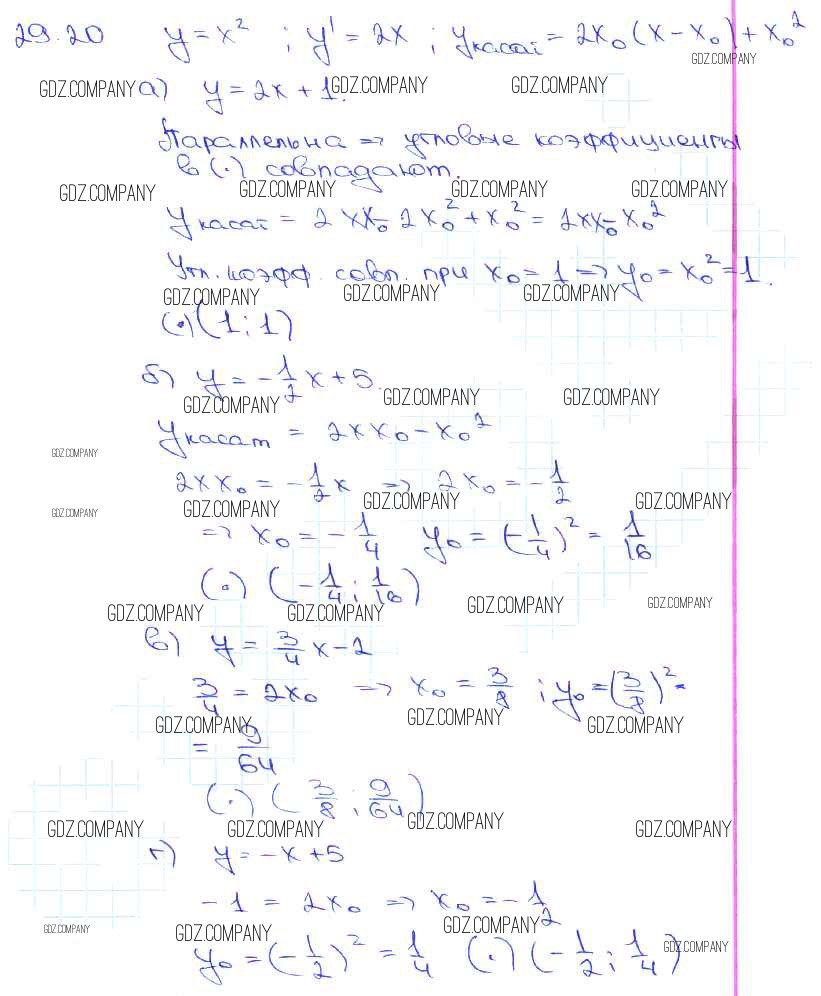 29.20 y = x² ; y' = 2x ; y касат = 2x₀(x - x₀) + x₀²
GDZ.COMPANY
GDZ.COMPANY а) y = 2x + 1. GDZ.COMPANY GDZ.COMPANY
Параллельна => угловые коэффициенты
в (·) совпадают.
GDZ.COMPANY GDZ.COMPANY GDZ.COMPANY GDZ.COMPANY
y касат = 2xx₀ - 2x₀² + x₀² = 2xx₀ - x₀²
Угл. коэфф. совп. при x₀ = 1 => y₀ = x₀² = 1.
GDZ.COMPANY GDZ.COMPANY GDZ.COMPANY
(·) (1; 1)
б) y = -1/2 x + 5.
GDZ.COMPANY GDZ.COMPANY GDZ.COMPANY
y касат = 2xx₀ - x₀²
GDZ.COMPANY
2xx₀ = -1/2 x => 2x₀ = -1/2
GDZ.COMPANY GDZ.COMPANY GDZ.COMPANY GDZ.COMPANY
=> x₀ = -1/4 y₀ = (-1/4)² = 1/16
(·) (-1/4; 1/16)
GDZ.COMPANY GDZ.COMPANY GDZ.COMPANY GDZ.COMPANY
в) y = 3/4 x - 2
3/4 = 2x₀ => x₀ = 3/8 ; y₀ = (3/8)² =
GDZ.COMPANY GDZ.COMPANY GDZ.COMPANY
= 9/64
(·) (3/8; 9/64)
GDZ.COMPANY GDZ.COMPANY GDZ.COMPANY GDZ.COMPANY
г) y = -x + 5
-1 = 2x₀ => x₀ = -1/2
GDZ.COMPANY GDZ.COMPANY GDZ.COMPANY GDZ.COMPANY
y₀ = (-1/2)² = 1/4 (·) (-1/2; 1/4)